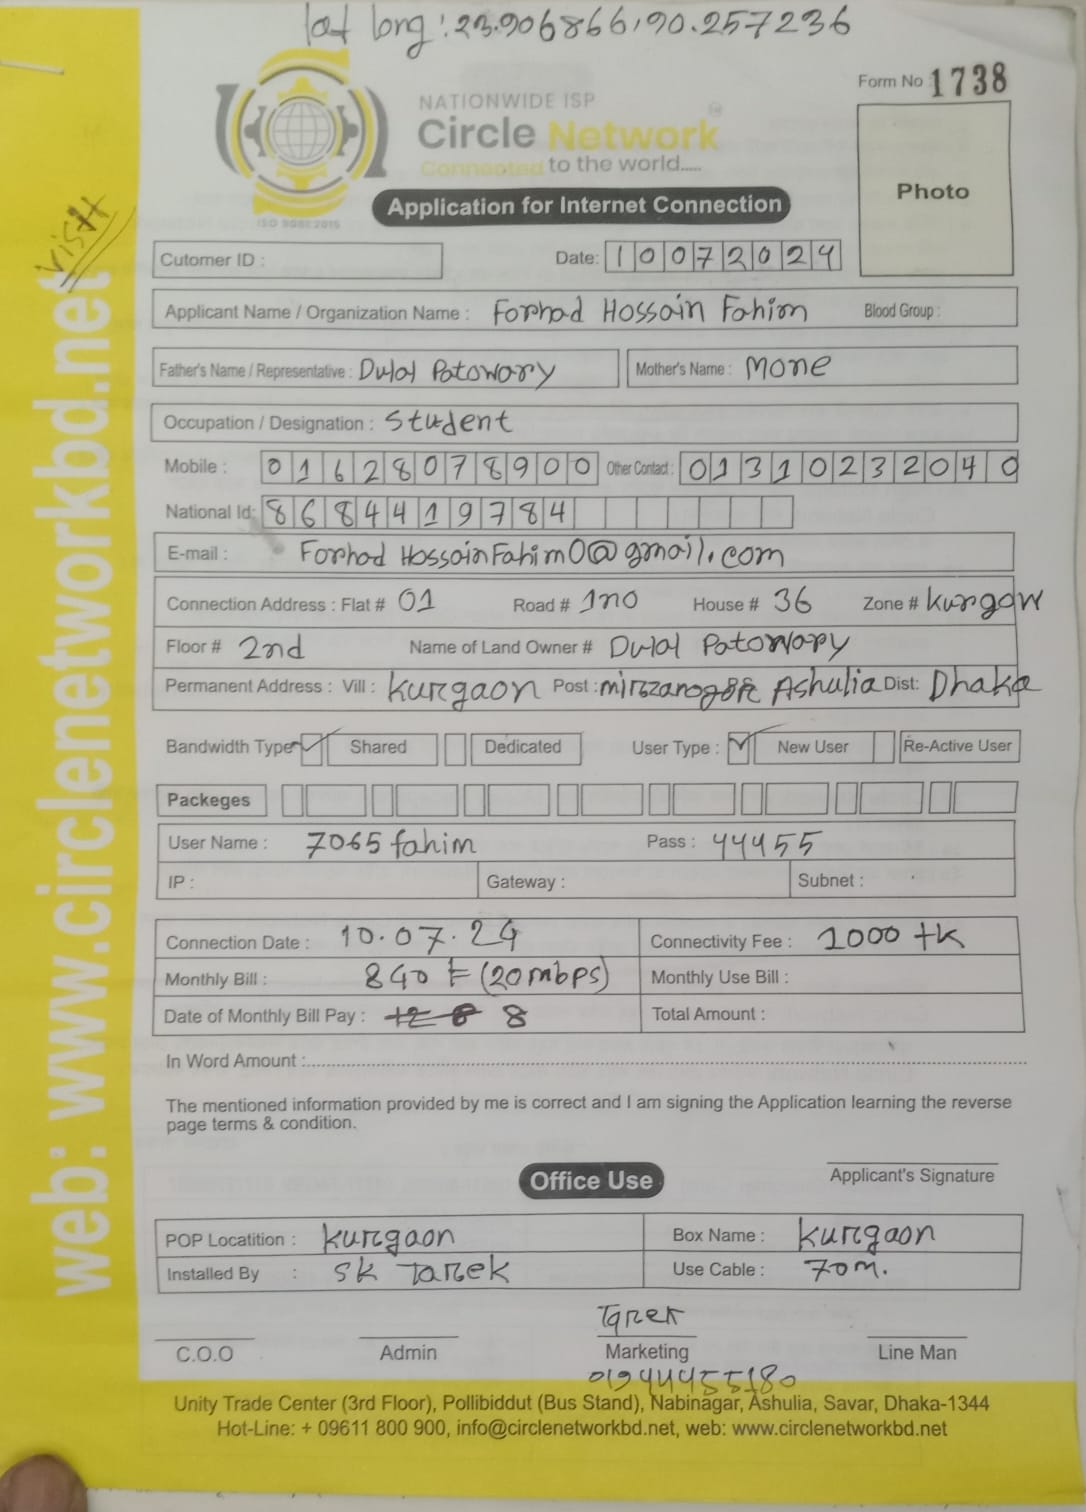 lat long: 23.906866,90.257236
Form No 1738
NATIONWIDE ISP
Circle Network
Connected to the world.....
ISO 9001:2015
Photo
Application for Internet Connection
visit
Cutomer ID :
Date: 10072024
Applicant Name / Organization Name : Forhad Hossain Fahim Blood Group :
Father's Name / Representative : Dulal Patowary Mother's Name : Mone
Occupation / Designation : Student
Mobile : 01628078900 Other Contact : 01310232040
National Id: 8684419784
E-mail : Forhad HossainFahim0@gmail.com
Connection Address : Flat # 01 Road # 1no House # 36 Zone # Kurgaw
Floor # 2nd Name of Land Owner # Dulal Patowary
Permanent Address : Vill : Kurgaon Post : Ashulia Dist: Dhaka
Bandwidth Type Shared Dedicated User Type : New User Re-Active User
Packeges
User Name : 7065 fahim Pass : 44455
IP : Gateway : Subnet :
Connection Date : 10.07.24 Connectivity Fee : 1000 tk
Monthly Bill : 840 (20mbps) Monthly Use Bill :
Date of Monthly Bill Pay : 8 Total Amount :
In Word Amount :
The mentioned information provided by me is correct and I am signing the Application learning the reverse
page terms & condition.
Office Use
Applicant's Signature
POP Locatition : Kurgaon Box Name : Kurgaon
Installed By : SK Tarek Use Cable : 70m.
Tarek
C.O.O Admin Marketing Line Man
01944455180
Unity Trade Center (3rd Floor), Pollibiddut (Bus Stand), Nabinagar, Ashulia, Savar, Dhaka-1344
Hot-Line: + 09611 800 900, info@circlenetworkbd.net, web: www.circlenetworkbd.net
web: www.circlenetworkbd.net